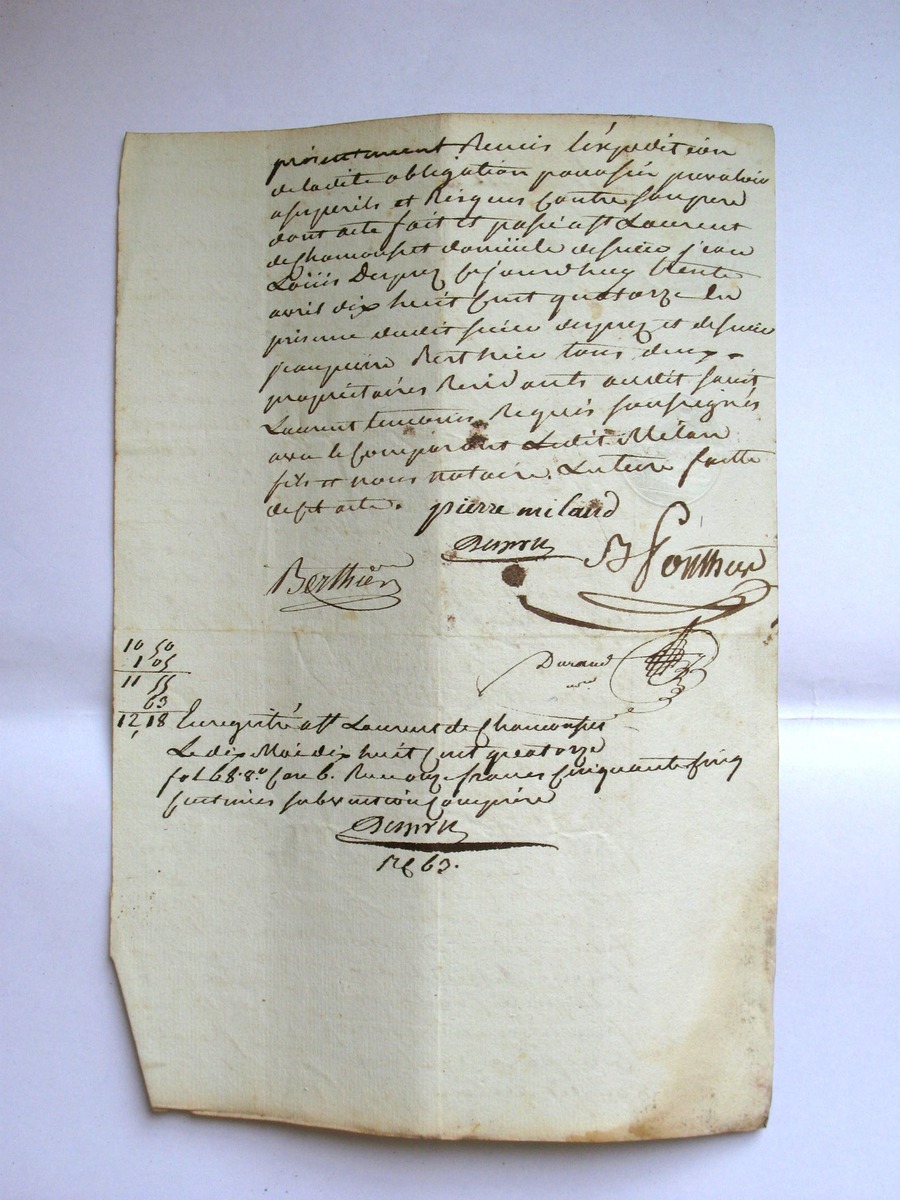 présentement Remis l'expedition
de ladite obligation pour s'en prevaloir
a ses perils et Risques Contre son pere
dont acte fait et passé a St Laurent
de Chamousset domicile de sieur jean
Loüis Desprez ce jourdhuy trente
avril dix huit Cent quatorze En
presence dudit sieur desprez et de sieur
jean pierre Berthier tous deux
propriétaires Residants audit Saint
Laurent temoins Requis soussignés
avec le Comparant Ledit Milan
fils et nous notaire. Lecture faitte
de Cet acte. pierre miland
Berthier
Bl Ponthus
Durand
10 50
1 05
11 55
63
12,18 Enregistré a St Laurent de Chamousset
Le dix Mai dix huit Cent quatorze
fol 68. Ro Case 6. Recu onze francs Cinquante Cinq
Centimes subvention Comprise
63.